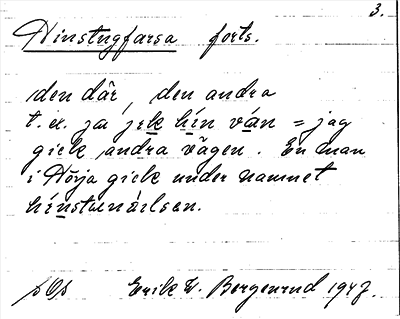 3.
Hinstugfarsa forts.
den där, den andra
t. ex. ja jek hinván = jag
gick andra vägen. En man
i Nörja gick under namnet
sOs Erik W. Bergenrud 1947.